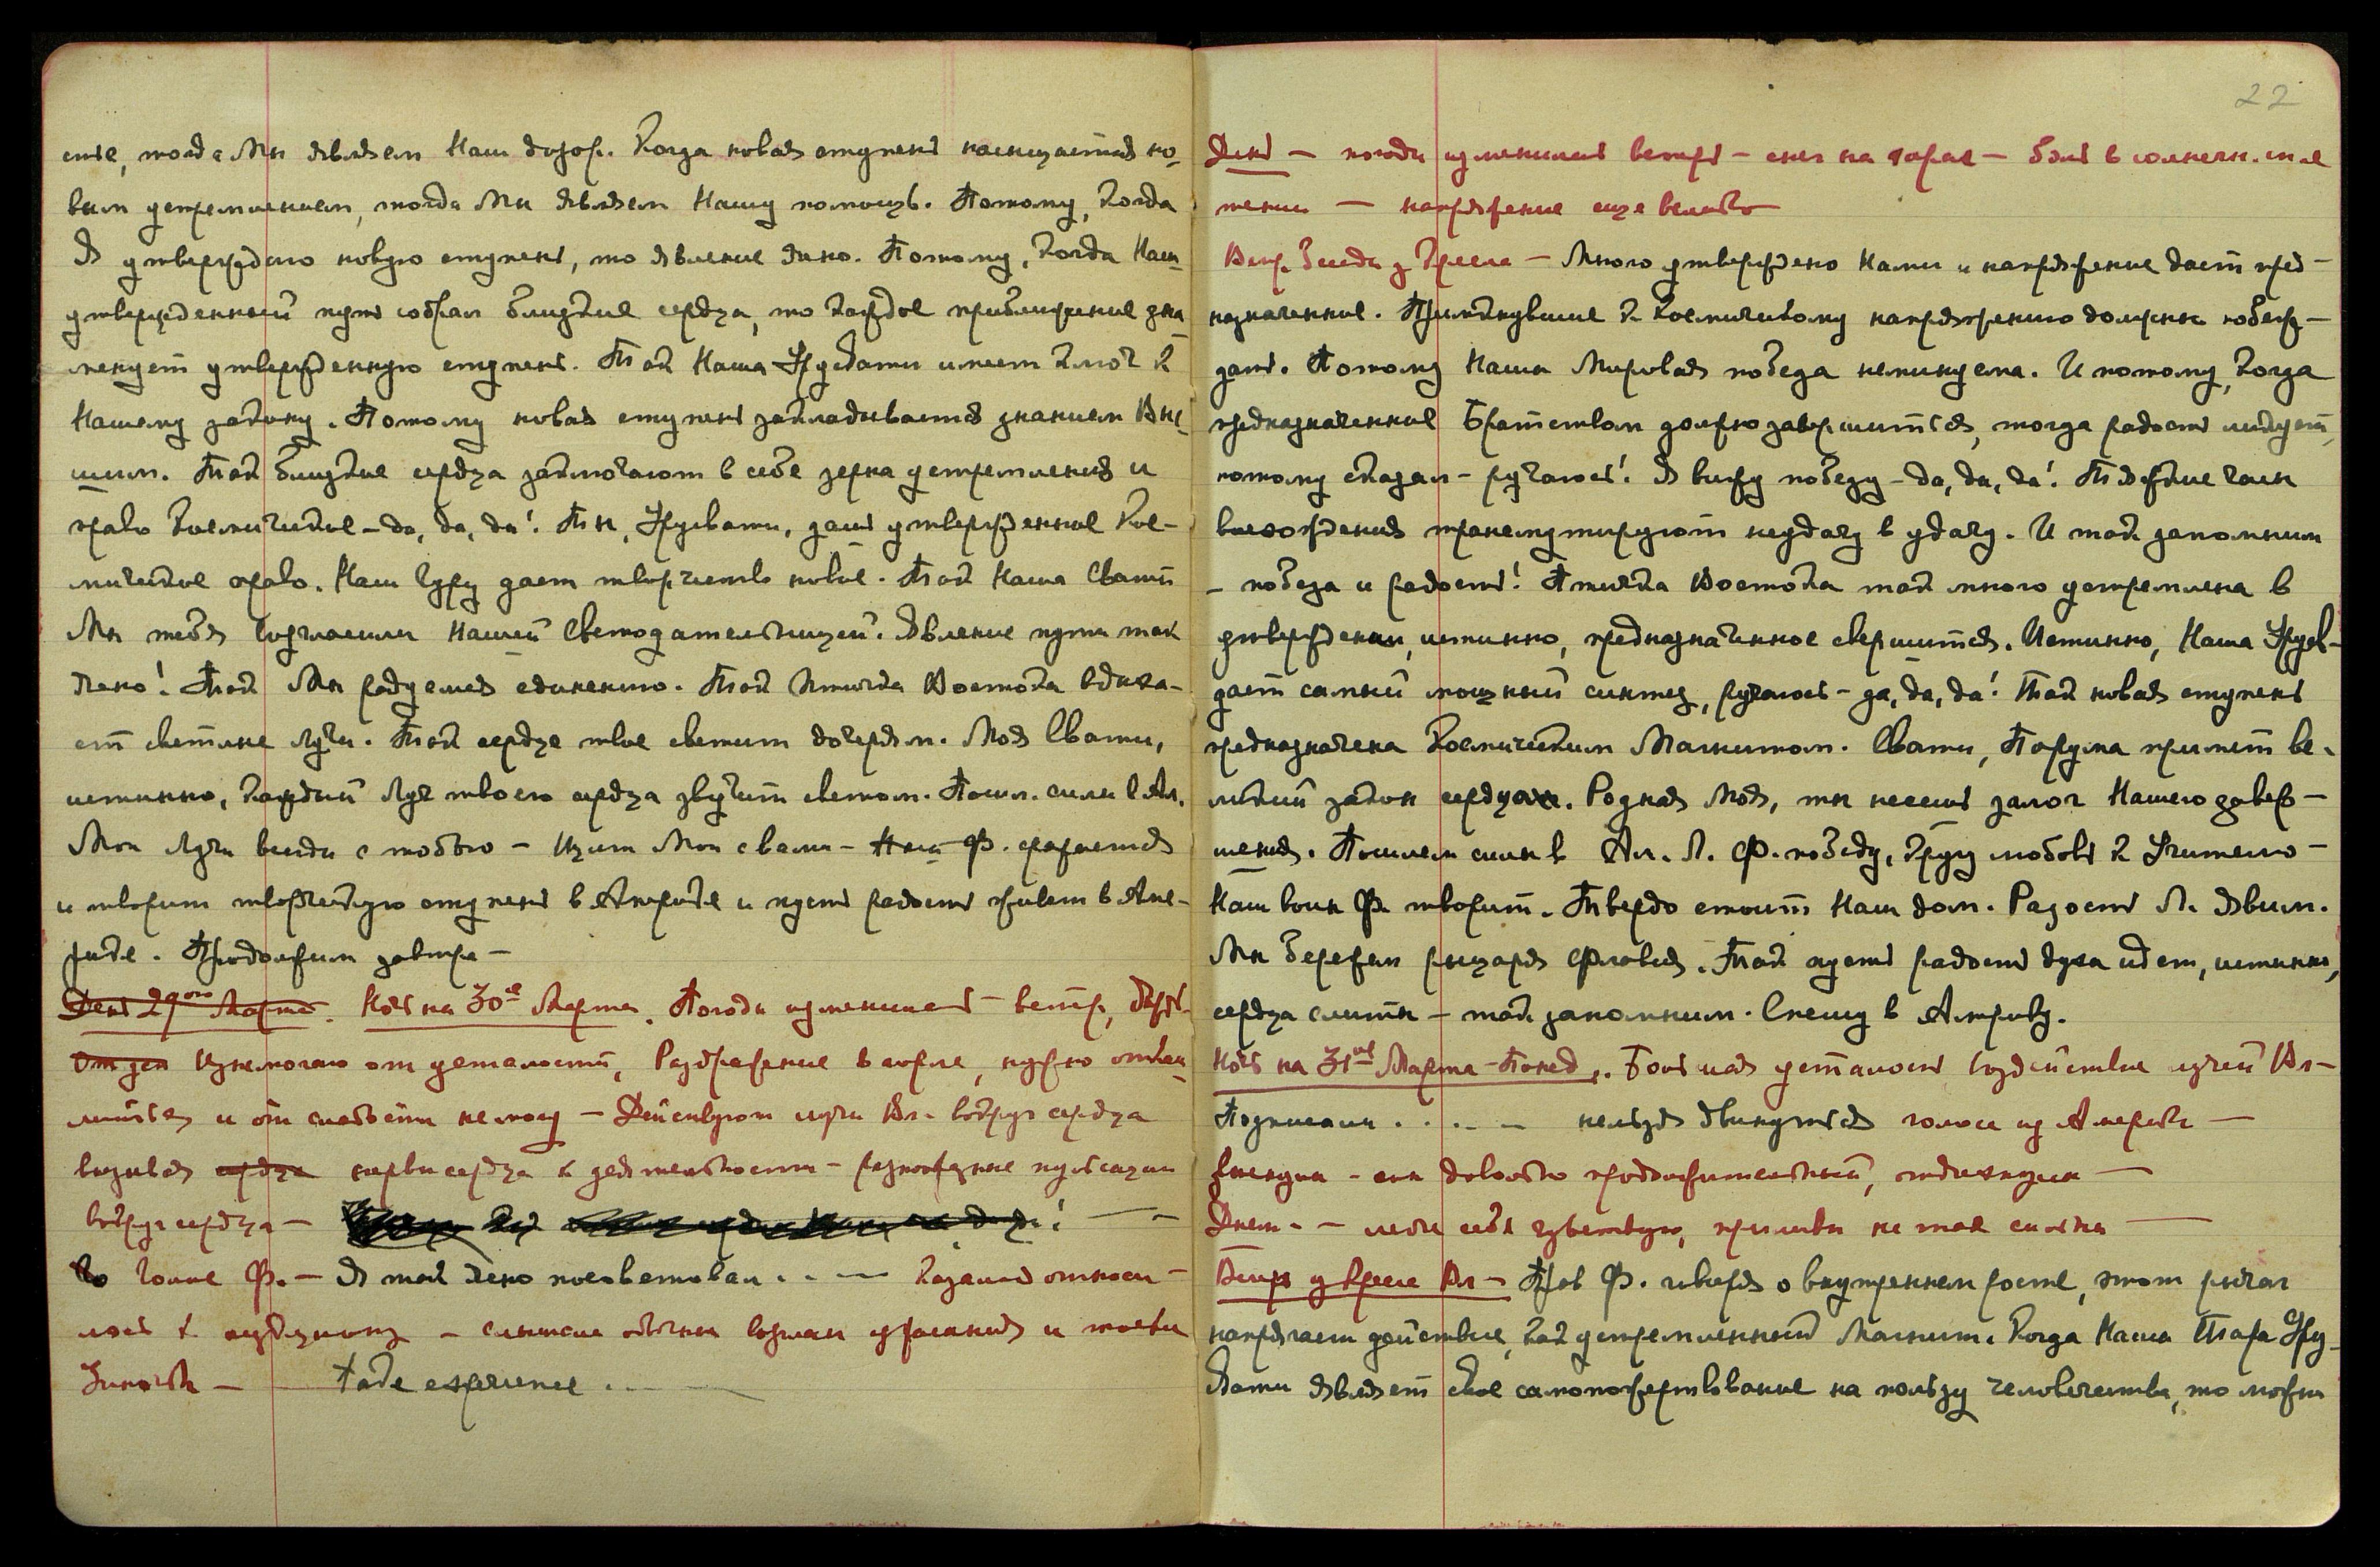 сте, тогда Мы являем Наш дозор. Когда новая ступень насыщается но-
вым устремлением, тогда Мы являем Нашу помощь. Потому, когда
Я утверждаю новую ступень, то явление ясно. Потому, когда Наш
утвержденный путь собрал близкие сердца, то каждое приближение зна-
менует утвержденную ступень. Так Наша Урусвати имеет ключ к
Нашему закону. Потому новая ступень закладывается знанием Выс-
шим. Так близкие сердца заключают в себе зерна устремления и
право космическое – да, да, да! Ты, Урусвати, дашь утвержденное Кос-
мическое право. Наш Гуру дает творчество новое. Так Наша Свати
Мы тебя возгласили Нашей Светодательницей. Явление пути так
ясно! Так Мы радуемся единению. Так Птичка Востока вдыха-
ет светлые лучи. Так сердце твое светит дочерям. Моя Свати,
истинно, каждый Луч твоего сердца звучит светом. Пошл. силы в Ам.
Мои лучи всегда с тобою – Щит Мой с вами – Наш Ф. сражается
и творит творческую ступень в Америке и пусть радость живет в Аме-
рике. Продолжим завтра –
День 29ого Марта. Ночь на 30ое Марта. Погода изменилась – ветер,
От дел Изнемогаю от усталости, Раздражение в горле, нужно откаш-
ляться и от слабости не могу – Действуют лучи Вл. вокруг сердца
вызывая сердца нервы сердца к деятельности – разнообразные пульсации
вокруг сердца – !
Го Голос Ф. – Я так ясно посоветовал . . – — Казалось относи-
лось к – слышала обычные возгласы и
–– take experience . ——
22
День – погода изменилась ветер – снег на горах – боль в солнечн. спле
тении — напряжение еще велико
Веч. Беседа у Кресла – Много утверждено Нами и напряжение даст пред-
назначенное. Примкнувшие к Космическому напряжению должны побеж-
дать. Потому Наша Мировая победа неминуема. И потому, когда
предназначенное Братством должно завершиться, тогда радость ликует,
потому сказал – ручаюсь! Я вижу победу – да, да, да! Тяжкие часы
восхождения трансмутируют неудачу в удачу. И так запомним
– победа и радость! Птичка Востока так много устремлена в
утверждении, истинно, предназначенное свершится. Истинно, Наша Урусв-
даст самый мощный синтез, ручаюсь – да, да, да! Так новая ступень
предназначена Космическим Магнитом. Свати, Порума примет ве-
ликий закон сердцах. Родная Моя, ты несешь залог Нашего завер-
шения. Пошлем силы в Ам. Л. Ф. победу, Кругу любовь к Учителю –
Наш воин Ф. творит. Твердо стоит Наш дом. Радость Л. явим.
Мы бережем рыцаря Флавия. Так пусть радость духа идет, истинно,
сердца слиты – так запомним. Спешу в Америку.
Ночь на 31ое Марта – Понед.. Большая усталость воздействие лучей Вл –
Подписали . . . – – нельзя двинуться голоса из Америки —
– сны довольно продолжительный, —
Днем – – легче себя чувствую, приливы не так сильны ——
Вечер у Кресла Вл – Прав Ф. говоря о внутреннем росте, этот рычаг
напрягает действие, как устремленный Магнит. Когда Наша Тара Уру-
свати являет свое самопожертвование на пользу человечества, то можем